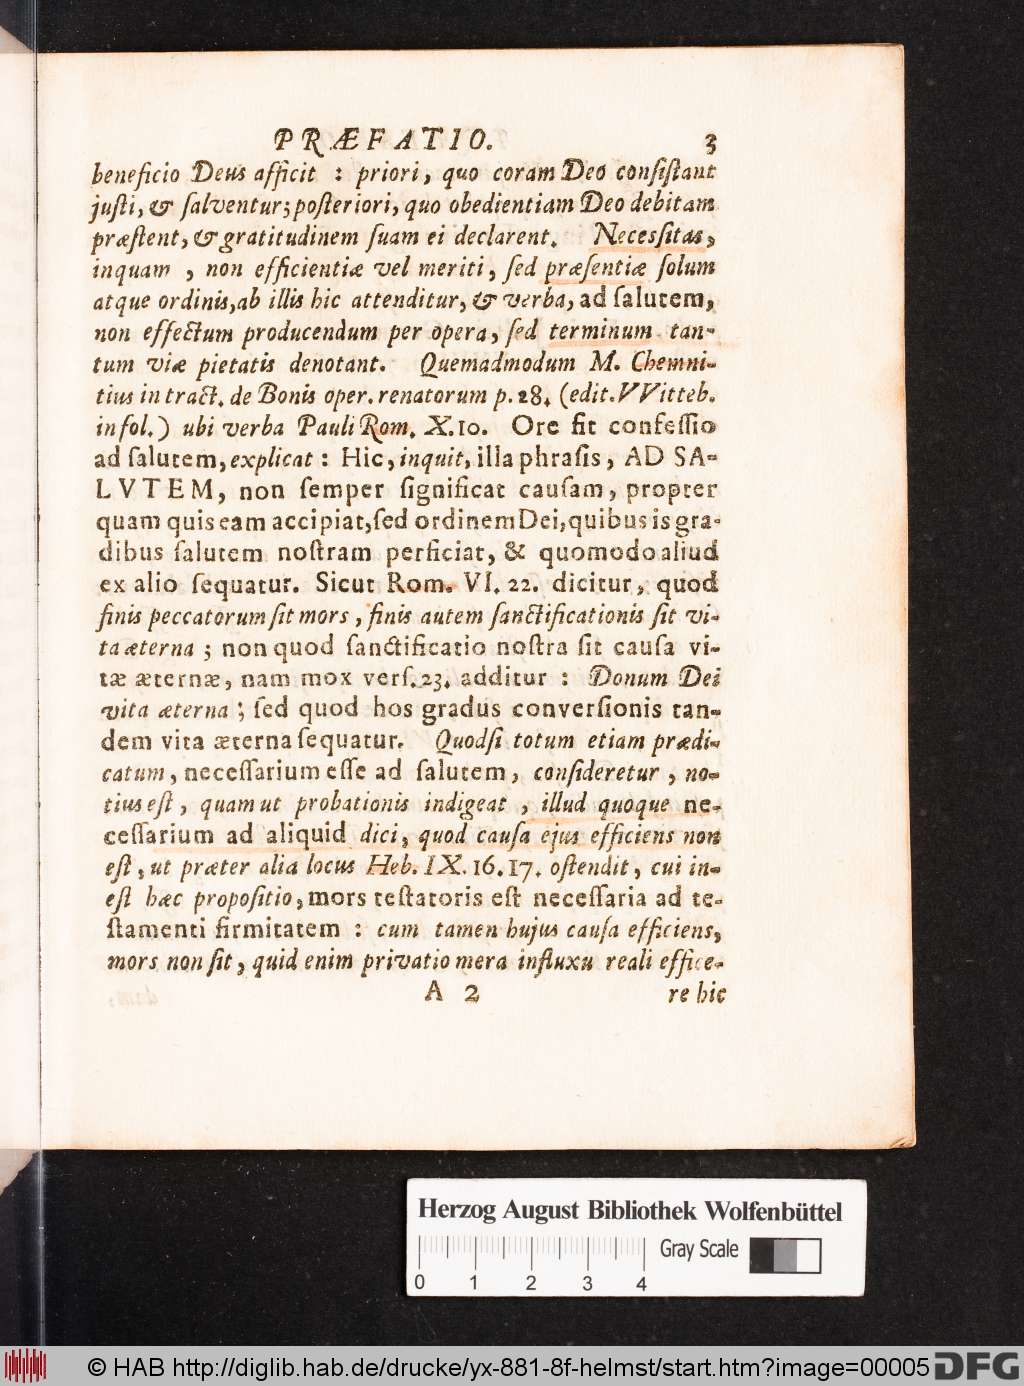 PRÆFATIO. 3
beneficio Deus afficit : priori, quo coram Deo consiſtant
juſti, & ſalventur; poſteriori, quo obedientiam Deo debitam
præſtent, & gratitudinem ſuam ei declarent. Necesſitas,
inquam , non efficientiæ vel meriti, ſed præſentiæ ſolum
atque ordinis, ab illis hic attenditur, & verba, ad ſalutem,
non effectum producendum per opera, ſed terminum tan-
tum viæ pietatis denotant. Quemadmodum M. Chemni-
tius in tract. de Bonis oper. renatorum p. 28. (edit. VVitteb.
in fol.) ubi verba Pauli Rom. X. 10. Ore fit confeſſio
ad ſalutem, explicat : Hic, inquit, illa phraſis, AD SA-
LVTEM, non ſemper ſignificat cauſam, propter
quam quis eam accipiat, ſed ordinem Dei, quibus is gra-
dibus ſalutem noſtram perficiat, & quomodo aliud
ex alio ſequatur. Sicut Rom. VI. 22. dicitur, quod
finis peccatorum ſit mors , finis autem ſanctificationis ſit vi-
ta æterna ; non quod ſanctificatio noſtra ſit cauſa vi-
tæ æternæ, nam mox verſ. 23. additur : Donum Dei
vita æterna ; ſed quod hos gradus converſionis tan-
dem vita æterna ſequatur. Quodſi totum etiam prædi-
catum, neceſſarium eſſe ad ſalutem, conſideretur , no-
tius eſt, quam ut probationis indigeat , illud quoque ne-
ceſſarium ad aliquid dici, quod cauſa ejus efficiens non
eſt, ut præter alia locus Heb. IX. 16. 17. oſtendit, cui in-
eſt hæc propoſitio, mors teſtatoris eſt neceſſaria ad te-
ſtamenti firmitatem : cum tamen hujus cauſa efficiens,
mors non ſit, quid enim privatio mera influxu reali effice-
A 2 re hic
Herzog August Bibliothek Wolfenbüttel
Gray Scale
0 1 2 3 4
© HAB http://diglib.hab.de/drucke/yx-881-8f-helmst/start.htm?image=00005 DFG